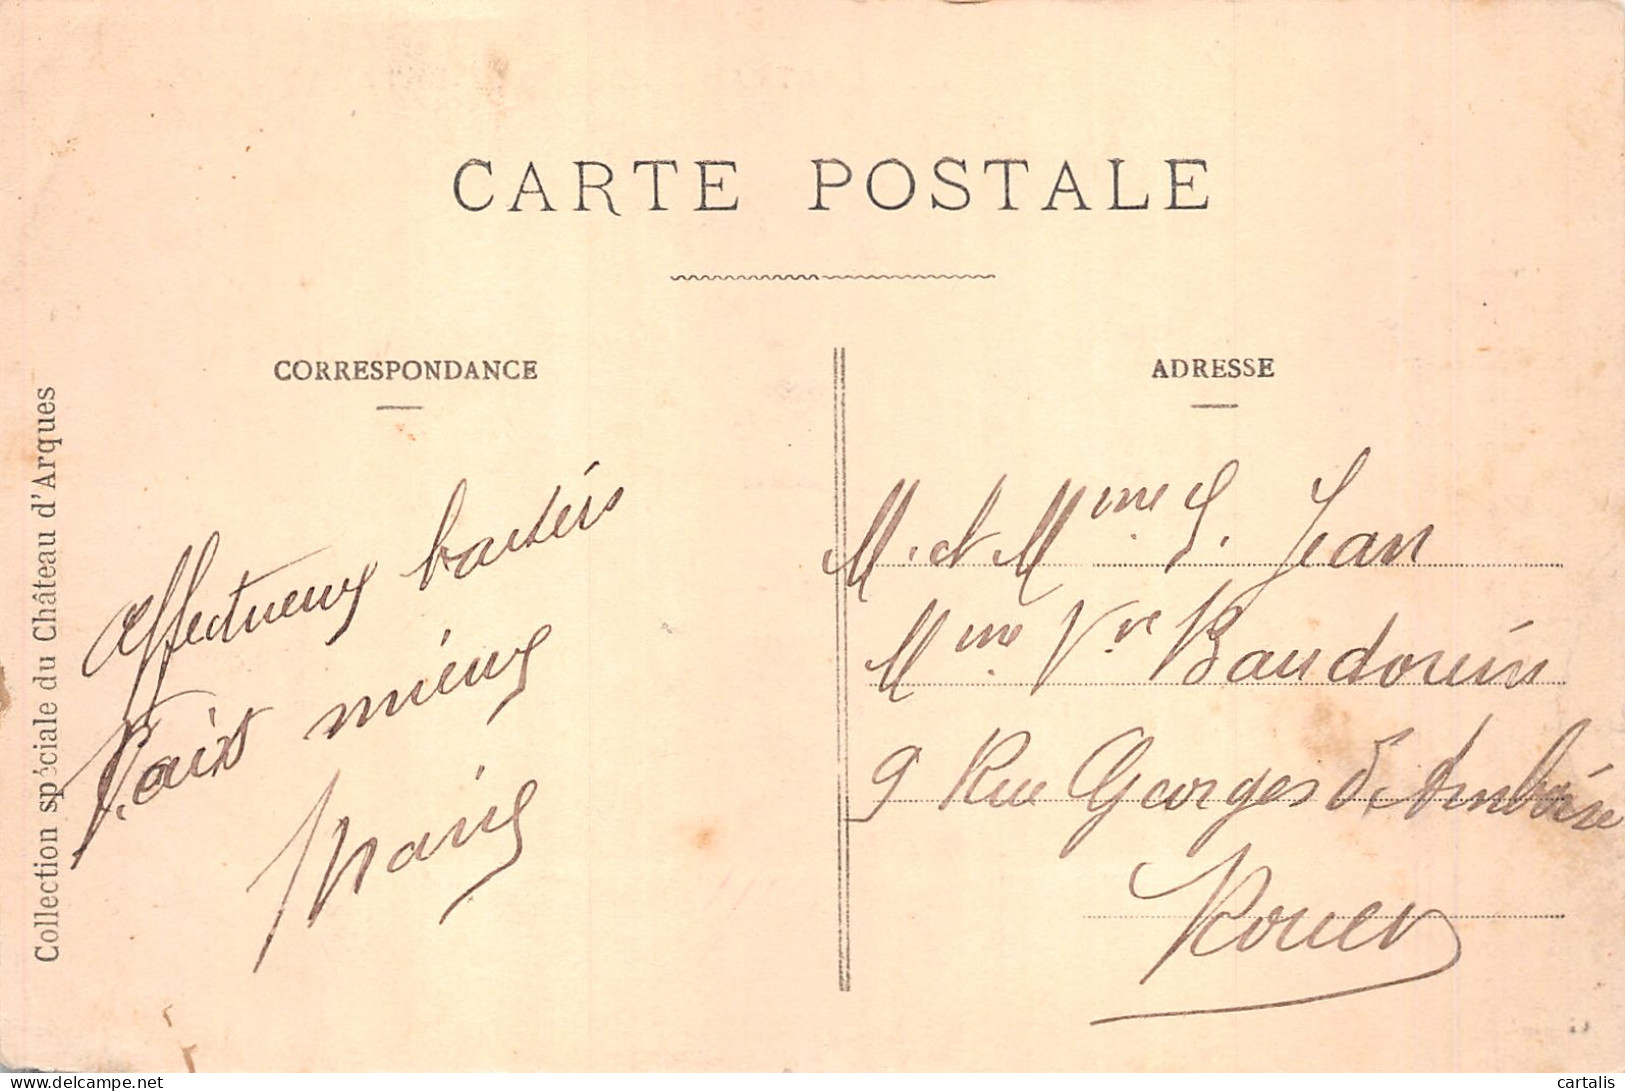 CARTE POSTALE
CORRESPONDANCE
ADRESSE
Collection spéciale du Château d'Arques
Affectueux baisers
Vais mieux
M. et Mme S. Jean
Mme Vve Baudouin
9 Rue Georges d'Amboise
Rouen
delcampe.net
cartalis